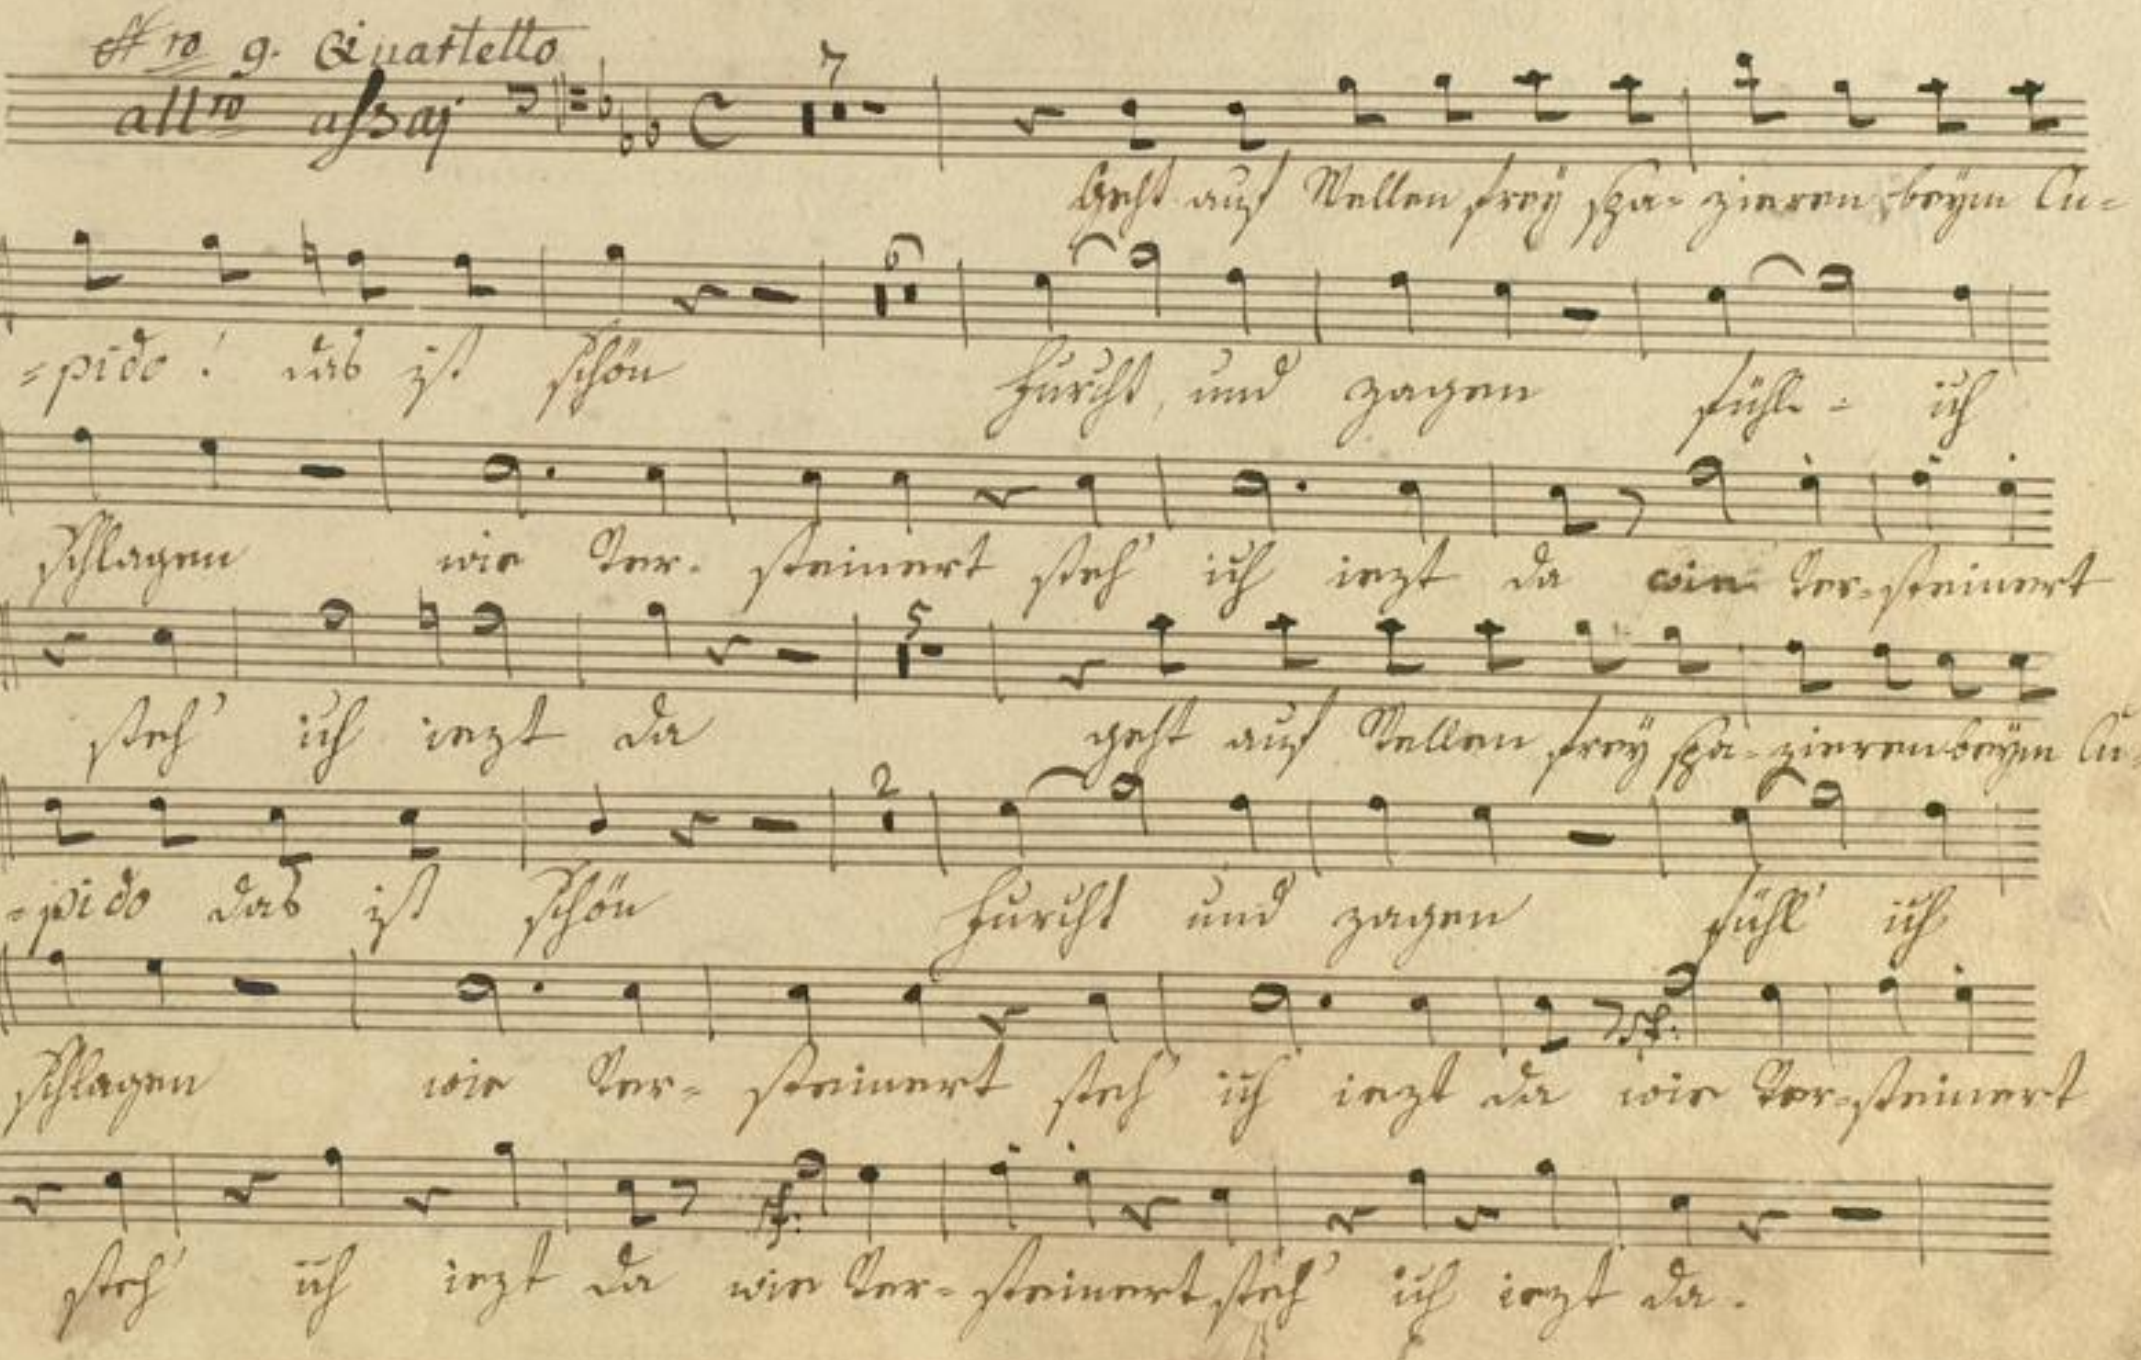 Nro 9. Quartetto
allro assai
7
Geht auf Wellen frey spa- zieren beym Cu=
6
=pido! das ist schön Furcht, und zagen fühl - ich
schlagen wie ver- steinert steh' ich iezt da wie ver-steinert
5
steh' ich iezt da geht auf Wellen frey spa-zieren beym Cu=
2
=pido das ist schön Furcht und zagen fühl' ich
sf:
schlagen wie ver- steinert steh' ich iezt da wie ver-steinert
sf:
steh' ich iezt da wie ver- steinert steh' ich iezt da.